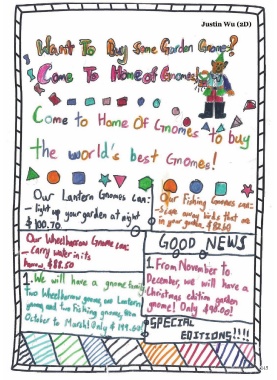 Justin Wu (2D)
Want To Buy Some Garden Gnomes?
Come To Home of Gnomes!
Come to Home Of Gnomes to buy
the world's best Gnomes!
Our Lantern Gnomes can:
- light up your garden at night
$100.70
Our Fishing Gnomes can:
- Scare away birds that are
in your garden. $82.60
Our Wheelbarrow Gnome can:
- Carry water in its
$88.50
GOOD NEWS
1. We will have a gnome family
two Wheelbarrow gnomes, two Lantern
gnomes and two Fishing gnomes, from
October to March! Only $199.60
1. From November to
December, we will have a
Christmas edition garden
gnome! Only $90.00!
SPECIAL
EDITIONS!!!!